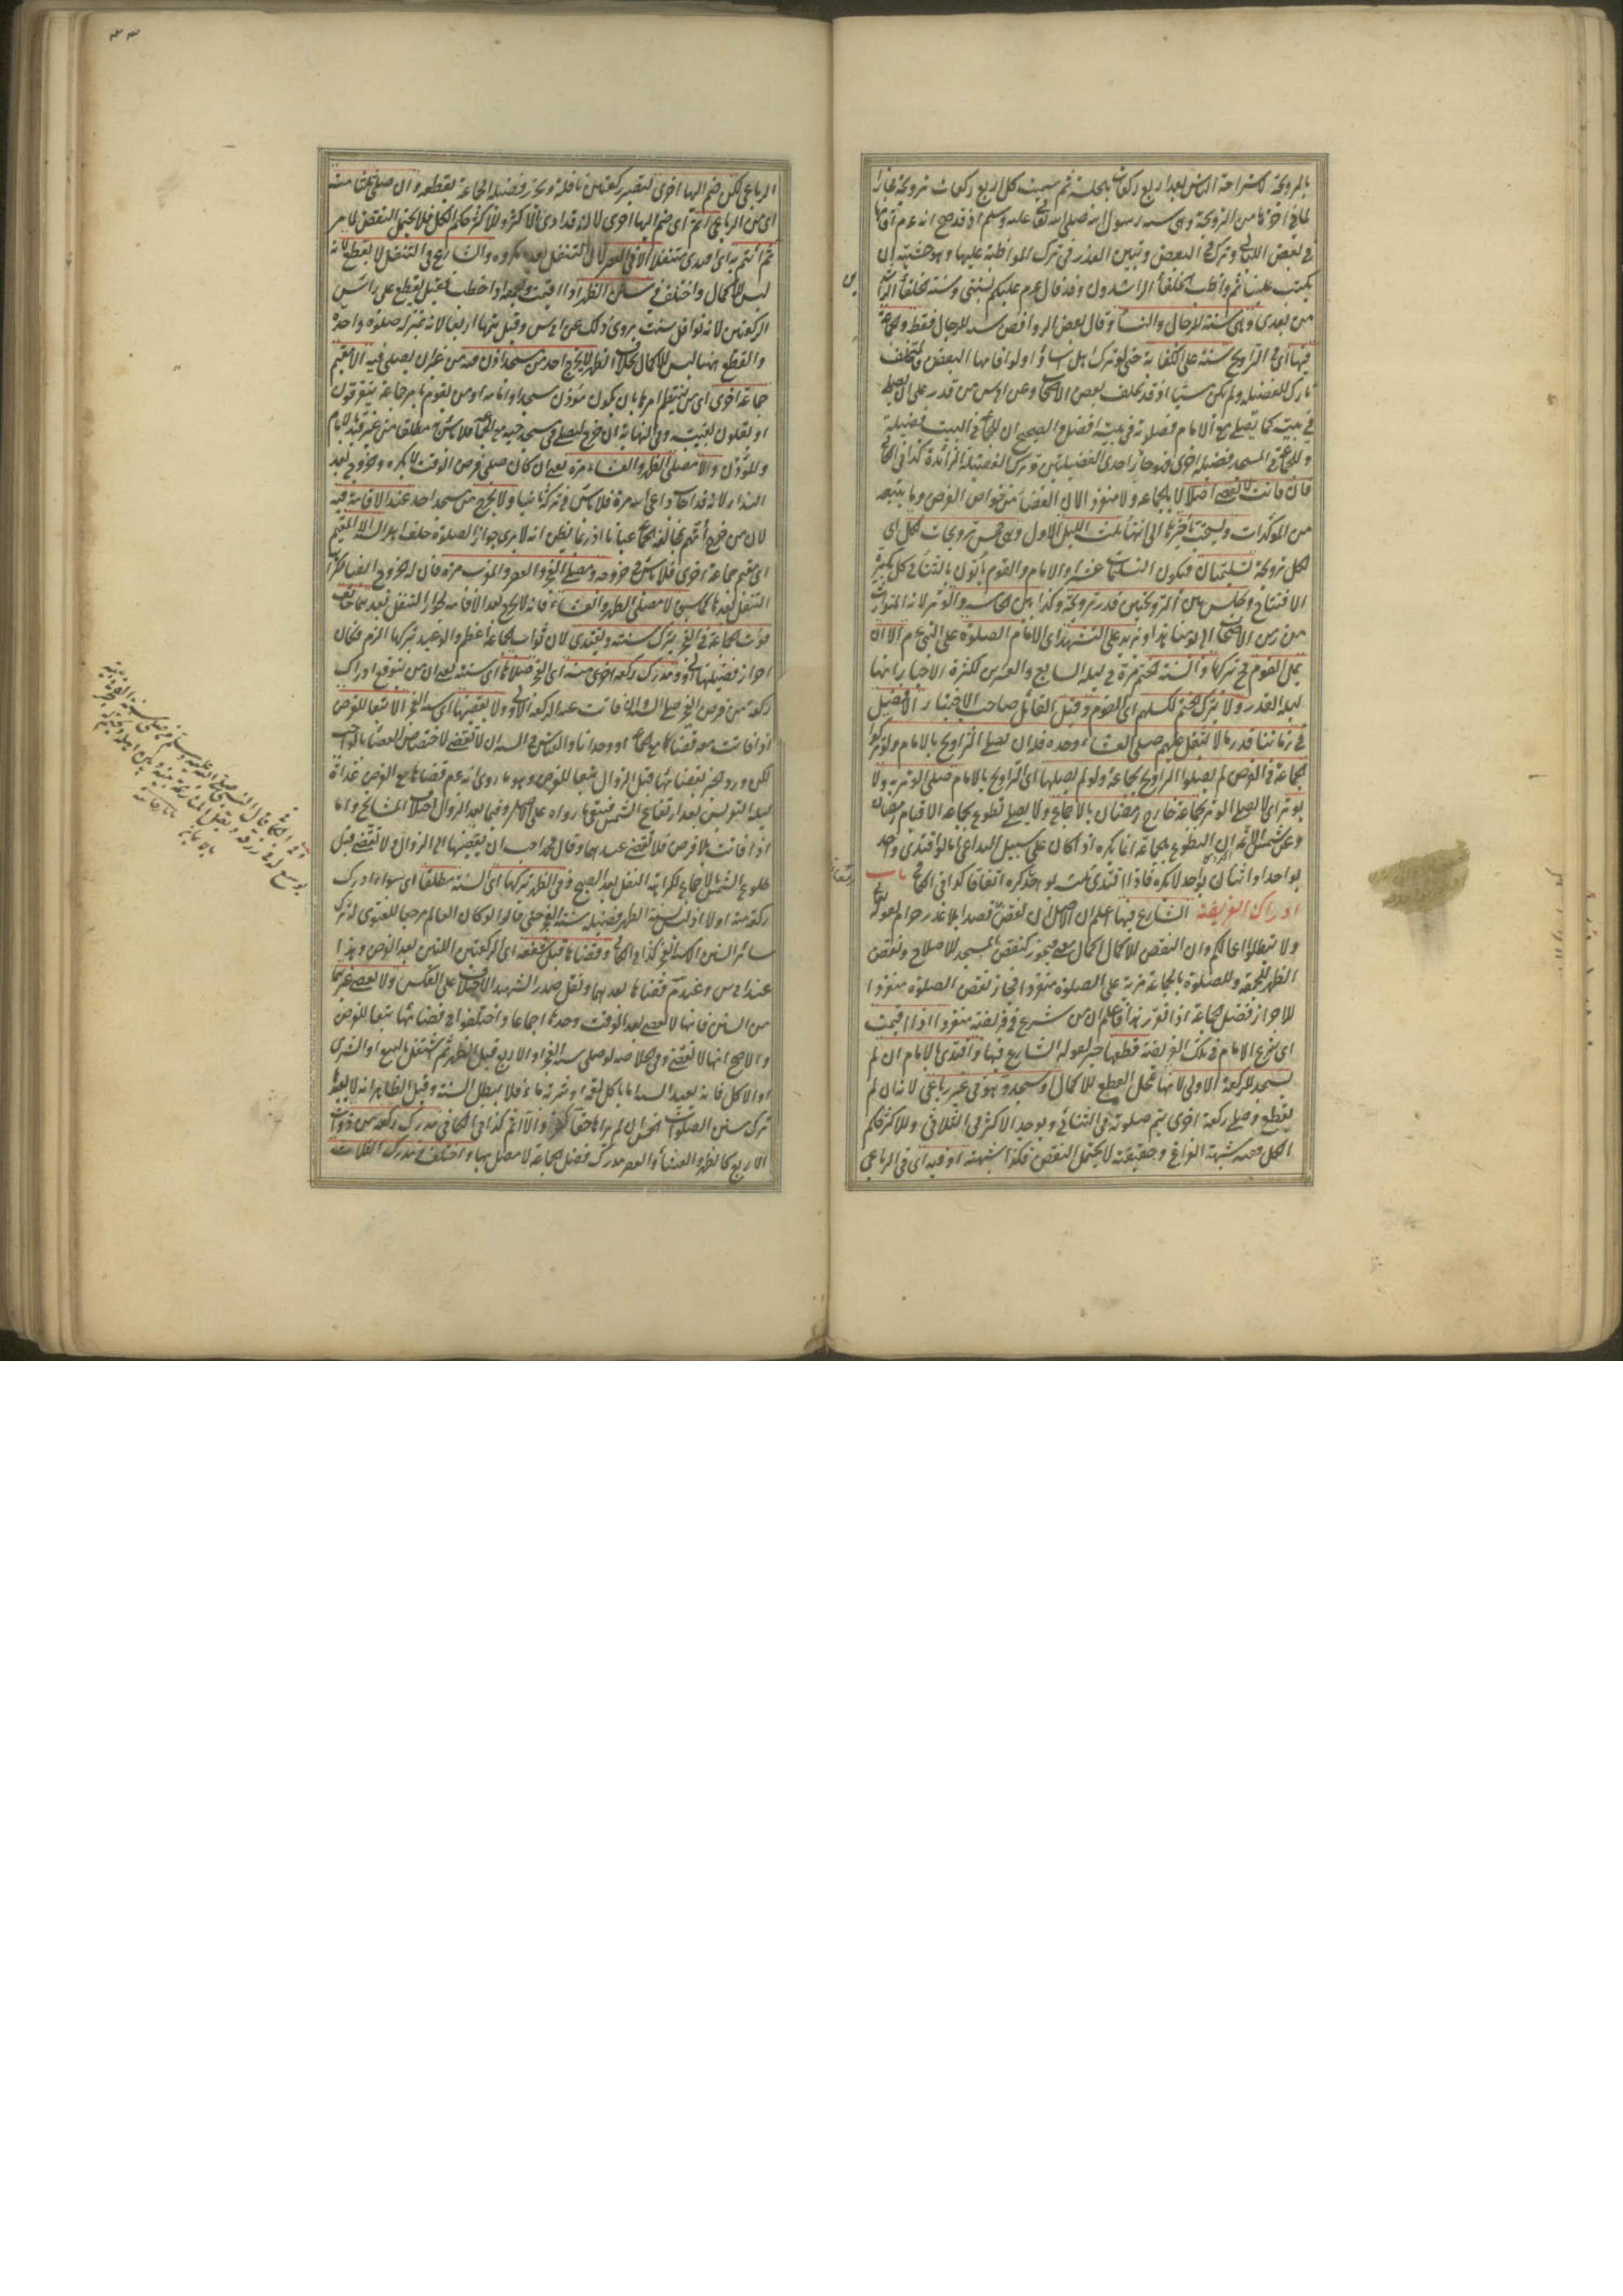 بالترويحة لاستراحة الناس بعد اربع ركعات بالجلسة ثم سميت كل اربع ركعات ترويحة مجازا
لما في اخرها من الترويحة وهى سنة رسول الله صلى الله تعالى عليه وسلم اذ قد صح انه عم اقامها
في بعض الليالى وترك في البعض وبين العذر في ترك المواظبة عليها وهو خشية ان
يكتب علينا ثم واظب الخلفاء الراشدون وقد قال عم عليكم بسنتى وسنة الخلفاء الراشدين
من بعدى وهى سنة للرجال والنساء وقال بعض الروافض سنة للرجال فقط والجماعة
فيها اى في التراويح سنة على الكفاية حتى لو ترك اهل مسجد اساؤا ولو اقامها البعض فالمتخلف
تارك للفضيلة ولم يكن مسيئا اذ قد تخلف بعض الاصحاب وعن ابى س من قدر على ان يصلى
في بيته كما يصلى مع الامام فصلوته في بيته افضل والصحيح ان للجماعة في البيت فضيلة
وللجماعة في المسجد فضيلة اخرى فهو حاز احدى الفضيلتين وترك الفضيلة الزائدة كذا في الكافى
فان فاتت لا تقضى اصلا لا بالجماعة ولا منفردا لان القضاء من خواص الفرض وما يتبعه
من المؤكدات ويستحب تأخيرها الى انتهاء ثلث الليل الاول وهى خمس ترويحات لكل اى
لكل ترويحة تسليمتان فيكون التسليمات عشرا والامام والقوم يأتون بالثناء في كل تكبيرة
الافتتاح وجلس بين الترويحتين قدر ترويحة وكذا بين الخامسة والوتر لانه المتوارث
من زمن الاصحاب الى يومنا هذا ويزيد على التشهد اى الامام الصلوة على النبى عم الا ان
يمل القوم فح يتركها والسنة الختم مرة في ليلة السابع والعشرين لكثرة الاخبار انها
ليلة القدر ولا يترك الختم لكسلهم اى القوم وقيل القائل صاحب الاختيار الافضل
في زماننا قدر ما لا يثقل عليهم صلى العشاء وحده فله ان يصلى التراويح بالامام ولو تركوا
الجماعة في الفرض لم يصلوا التراويح بجماعة ولو لم يصلها اى التراويح بالامام صلى الوتر به ولا
يوتر اى لا يصلى الوتر بجماعة خارج رمضان بالاجماع ولا يصلى تطوع بجماعة الا قيام رمضان
وعن شمس الائمة ان التطوع بجماعة انما يكره اذا كان على سبيل التداعى اما لو اقتدى واحد
بواحد او اثنان بواحد لا يكره فاذا اقتدى ثلثة بواحد كره اتفاقا كذا في الكافى باب
ادراك الفريضة الشارع فيها اعلم ان الاصل ان نقض قصدا بلا عذر حرام لقوله تعالى
ولا تبطلوا اعمالكم وان النقض للاكمال اكمال معنى فيجوز كنقض المسجد للاصلاح ونقض
الظهر للجمعة وللصلوة بالجماعة مزية على الصلوة منفردا فجاز نقض الصلوة منفردا
للاحراز فضل الجماعة اذا تقرر هذا فاعلم ان من شرع في فريضة منفردا اذا اقيمت
اى شرع الامام في تلك الفريضة قطعها خبر لقوله الشارع فيها واقتدى بالامام ان لم
يسجد للركعة الاولى لانها بمحل القطع للاكمال او سجد وهو في غير رباعى لانه ان لم
يقطع وصلى ركعة اخرى يتم صلوته في الثنائى ويوجد الاكثر في الثلاثى وللاكثر حكم
الكل ففيه شبهة الفراغ وحقيقته لا يحتمل النقض فكذا شبهته او فيه اى في الرباعى
٣٣
الرباعى لكن ضم اليها اخرى لتصير ركعتين نافلة ويحرز فضيلة الجماعة بقطعه وان صلى ثلثا منه
اى من الرباعى اتم اى ضم اليها اخرى لانه قد ادى الاكثر وللاكثر حكم الكل فلا يحتمل النقض لما مر
ثم ائتم به اى اقتدى متنفلا الا في العصر لان التنفل بعده مكروه والشارع في التنفل لا يقطع لانه
ليس للاكمال واختلف في سنن الظهر اذا اقيمت والجمعة اذا خطب فقيل يقطع على رأس
الركعتين لانه نوافل سنت يروى ذلك عن ابى س وقيل يتمها اربعا لانه بمنزلة صلوة واحدة
والقطع ههنا ليس للاكمال بخلاف الظهر لا يخرج احد من مسجد اذن فيه من غير ان يصلى فيه الا مقيم
جماعة اخرى اى من ينتظم امرها بان يكون مؤذن مسجد او امامه او من يقوم بامر جماعة يتفرقون
او يقلون لغيبته وفى النهاية ان خرج ليصلى في مسجد حيه مع الجماعة فلا بأس به مطلقا من غير قيد بالامام
والمؤذن والا مصلى الظهر والعشاء مرة يعنى ان كان صلى فرض الوقت لا يكره الخروج بعد
النداء لانه قد اجاب داعى الله مرة فلا بأس في تركه ثانيا ولا يخرج من مسجد احد عند الاقامة فيه
لان من خرج اتهم بمخالفة الجماعة عيانا اذ ربما يظن انه لا يرى جواز الصلوة خلف اهل السنة الا المقيم
اى مقيم جماعة اخرى فلا بأس في خروجه ومصلى الفجر والعصر والمغرب مرة فان له الخروج ايضا لكراهة
التنفل بعدها كما سبق لا مصلى الظهر والعشاء فانه لا يخرج بعد الاقامة لجواز التنفل بعدهما خائف
فوت الجماعة في الفجر يترك سنته ويقتدى لان ثواب الجماعة اعظم والوعيد بتركها الزم فكان
احراز فضيلتها اولى ومدرك ركعة اخرى منه اى الفجر صلاها اى سنته يعنى ان من يتوقع ادراك
ركعة من فرض الفجر صلى السنة وان فاتت عنه الركعة الاولى ولا يقضيها اى سنة الفجر الا تبعا للفرض
اذا فاتت معه قضاها مع الجماعة او وحده والقياس في السنة ان لا تقضى لاختصاص القضاء بالواجب
لكن ورد الخبر بقضائها قبل الزوال تبعا للفرض وهو ما روى انه عم قضاها مع الفرض غداة
ليلة التعريس بعد ارتفاع الشمس فبقى ما رواه على الاصل وفيما بعد الزوال اختلاف المشايخ واما
اذا فاتت بلا فرض فلا تقضى عندهما وقال محمد احب ان يقضيها الى الزوال ولا تقضى قبل
طلوع الشمس بالاجماع لكراهة النفل بعد الصبح وفى الظهر يتركها اى السنة مطلقا اى سواء ادرك
ركعة منه اولا اذ ليس لسنة الظهر فضيلة سنة الفجر حتى قالوا لو كان العالم مرجعا للفتوى له ترك
سائر السنن الا سنة الفجر كذا في الكافى وقضاها قبل شفعه اى الركعتين اللتين بعد الفرض وهذا
عند ابى س وعند م قضاها بعدهما ونقل صدر الشهيد الاختلاف على العكس ولا يقضى غيرهما
من السنن فانها لا تقضى بعد الوقت وحدها اجماعا واختلفوا في قضائها تبعا للفرض
والاصح انها لا تقضى وفى الخلاصة لو صلى سنة الفجر او الاربع قبل الظهر ثم اشتغل بالبيع او الشرى
او الاكل فانه يعيد السنة اما باكل لقمة او شربة ماء فلا يبطل السنة وقيل الظاهر انه لا يعيدها
ترك سنن الصلوات الخمس ان لم يرها حقا كفر والا اثم كذا في الكافى مدرك ركعة من ذوات
الاربع كالظهر والعشاء والعصر مدرك فضل الجماعة لا مصل بها واختلف في مدرك الثلاث